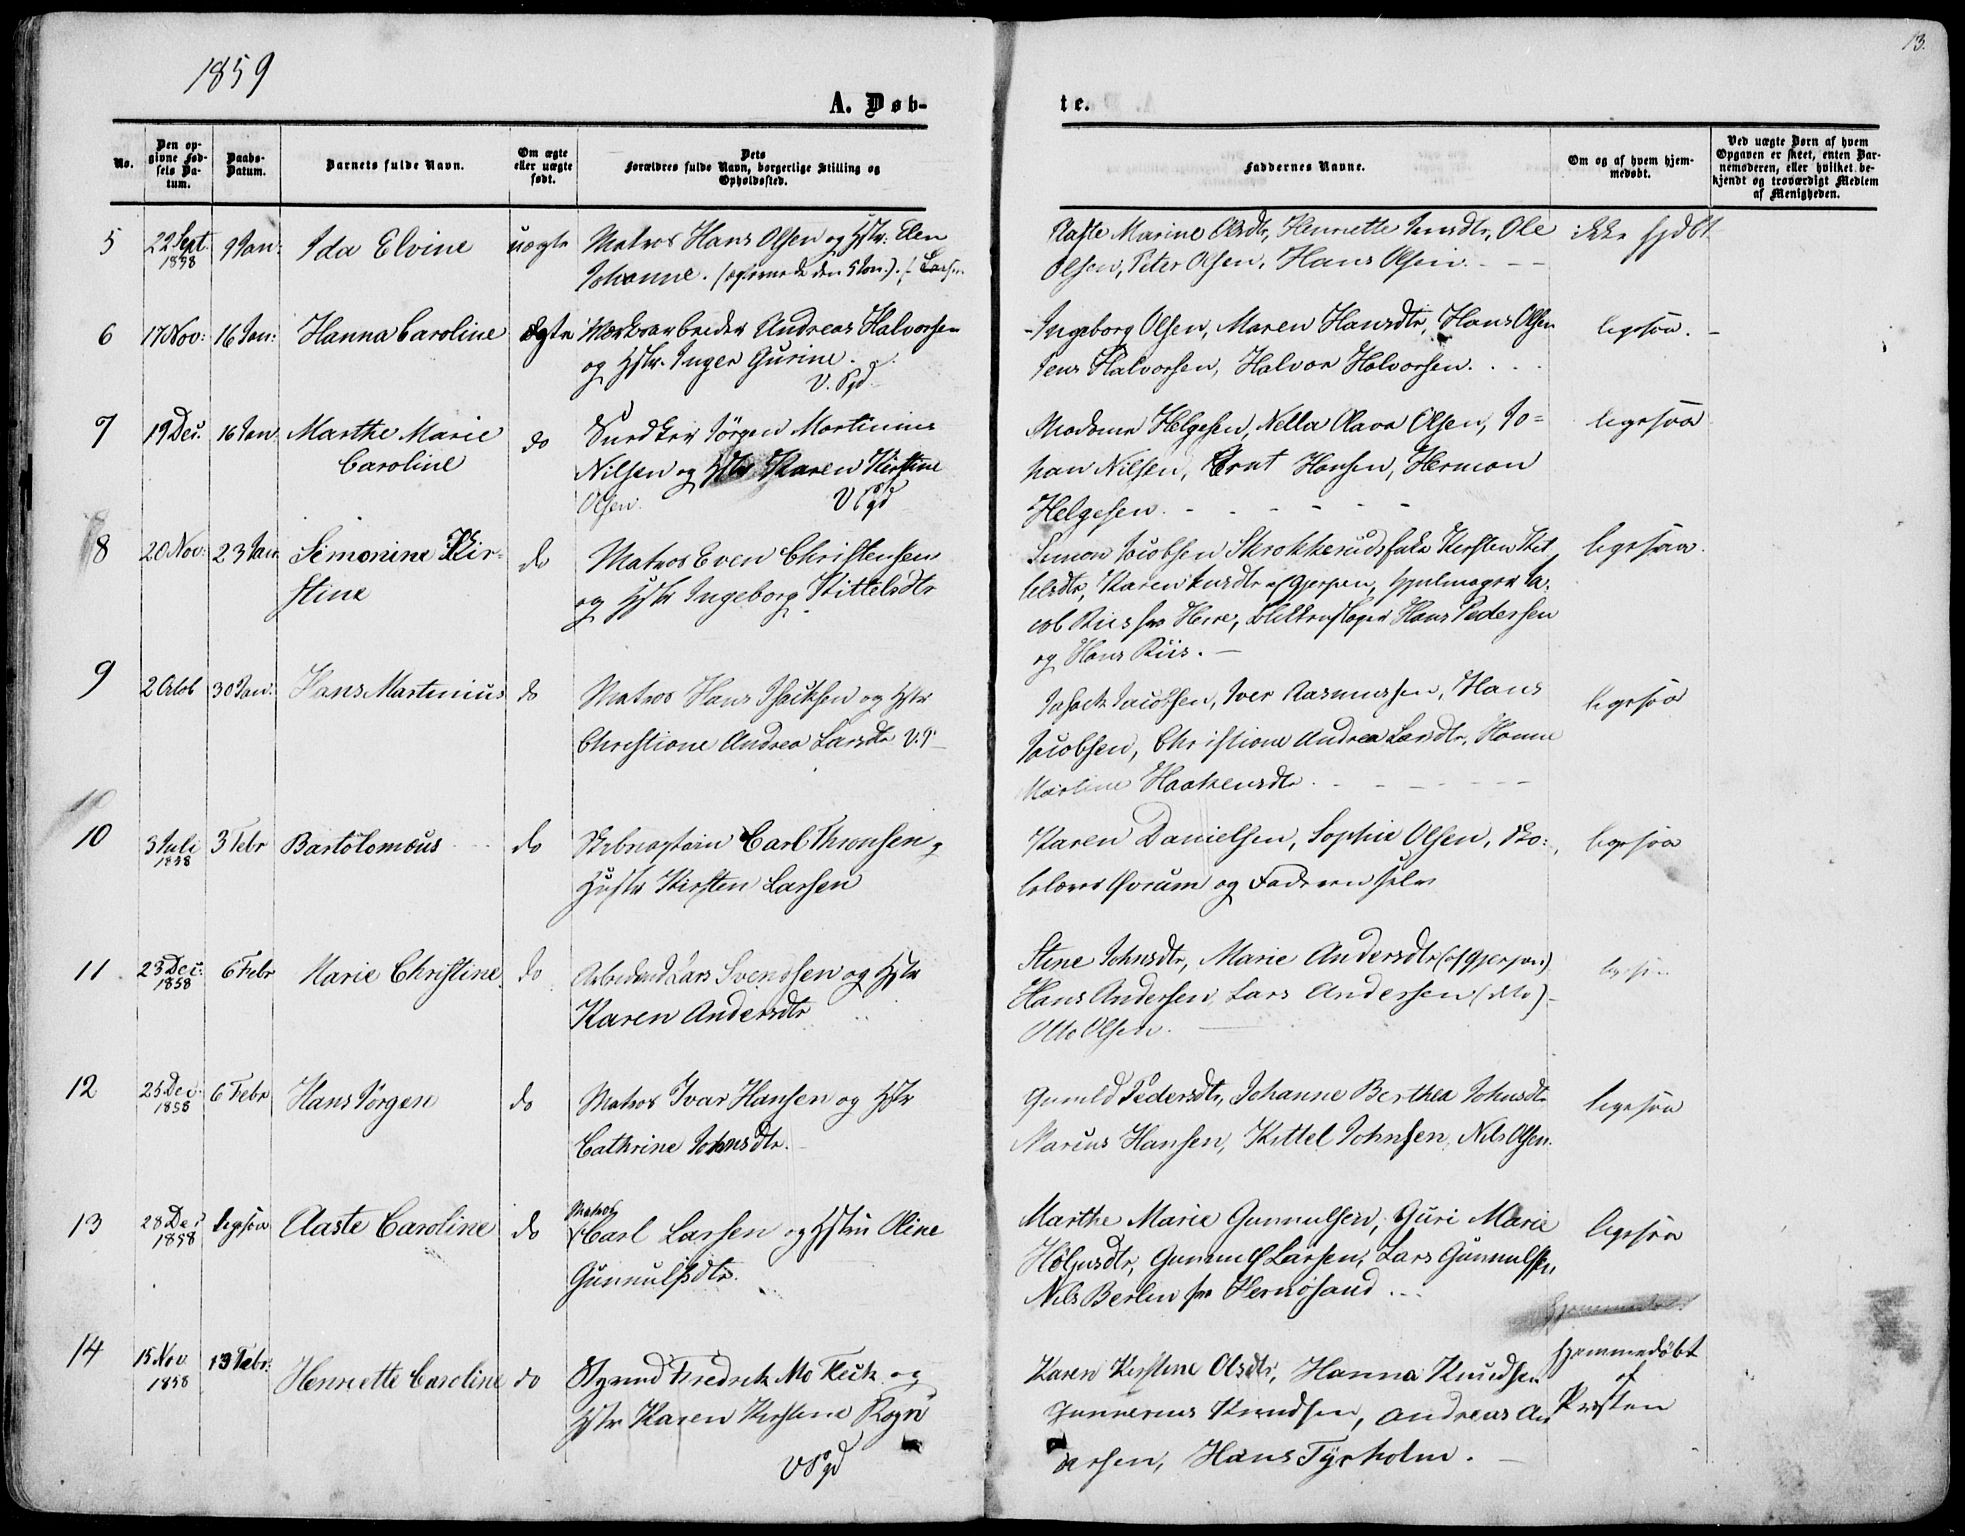 1859
13.
A. Døb-
te.
No.
Den op-
givne Fød-
sels Da-
tum.
Daabs-
Datum.
Barnets fulde Navn.
Om ægte
eller uægte
født.
Dets
Forældres fulde Navn, borgerlige Stilling og
Opholdssted.
Faddernes Navne.
Om og af hvem hjem-
medøbt.
Ved uægte Børn af hvem
Opgaven er skeet, enten Bar-
nemoderen, eller hvilket be-
kjendt og troværdigt Medlem
af Menigheden.
5 22 Sept. 1858 9 Jan: Ida Elvine uægte Matros Hans Olsen og Hstr: Elen
Johanne. (den 5 Jan.)
Aaste Marine Olsdtr, Henriette Jensdtr, Ole
Olsen, Peter Olsen, Hans Olsen.
ikke hjdbt.
6 17 Nov: 16 Jan: Hanna Caroline ægte Værksarbeider Andreas Halvorsen
og Hstr. Inger Gurine.
V. Sgd.
Ingeborg Olsen, Maren Hansdtr, Hans Olsen
Jens Halvorsen, Halvor Halvorsen.
ligesaa.
7 19 Dec. 16 Jan Marthe Marie
Caroline
do
Snedker Jørgen Martinius
Nilsen og Hstr Karen Kirstine
Olsen. V Sgd
Madame Helgesen, Nella Olava Olsen, Jo=
han Nilsen, Ernt Hansen, Herman
Helgesen.
ligesaa
8 20 Nov: 23 Jan Simonine Kir-
stine
do
Matros Even Christensen
og Hstr Ingeborg Kittelsdtr
Simon Jacobsen Skrokkerudfald Kirsten Kit
telsdtr, Karen af Gjerpen, Hjulmager Ja-
cob Riis fra Herre, Hans Pedersen
og Hans Riis.
ligesaa.
9 2 Octob 30 Jan: Hans Martinius do
Matros Hans Isacksen og Hstr
Christiane Andrea Larsdtr V. S
Isack Jacobsen, Iver Aasmussen, Hans
Jacobsen, Christiane Andrea Larsdtr, Hanne
Martine Haakensdtr
ligesaa
10 3 Juli 1858 3 Febr Bartolomæus do
Skibscaptain Carl Thronsen og
Hustr Kirsten Larsen
Karen Danielsen, Sophie Olsen, Sko-
lelærer Øvrum og Faderen selv
ligesaa
11 23 Dec: 1858 6 Febr Marie Christine do
Arbeidsmd Lars Svendsen og Hstr
Karen Andersdtr
Stine Johnsdtr, Marie Andersdtr (af Gjerpen)
Hans Andersen, Lars Andersen (dito)
Otto Olsen.
12 25 Dec. 1858 6 Febr Hans Jørgen do
Matros Ivar Hansen og Hstr
Cathrine Johnsdtr.
Gunild Pedersdtr, Johanne Berthea Johnsdtr
Marius Hansen, Kittel Johnsen, Nils Olsen.
ligesaa
13 28 Dec 1858 ligesaa Aaste Caroline do
Matros
Carl Larsen og Hstru Oline
Gunnulfsdtr.
Marthe Marie Gunnulsen, Guri Marie
Holjusdtr, Gunnulf Larsen, Lars Gunnulsen,
Nils Berlin fra Hernøsand
ligesaa
14 15 Nov 1858 13 Febr. Henriette Caroline do
Styrmd Fredrik Mo Fleck og
Hstr Karen Kirstine Rogn
V Sgd
Karen Kirstine Olsdtr, Hanna Knudsen
Gunnerius Knudsen, Andreas An
dersen, Hans Tyrholm.
hjemmedøbt
af
Præsten